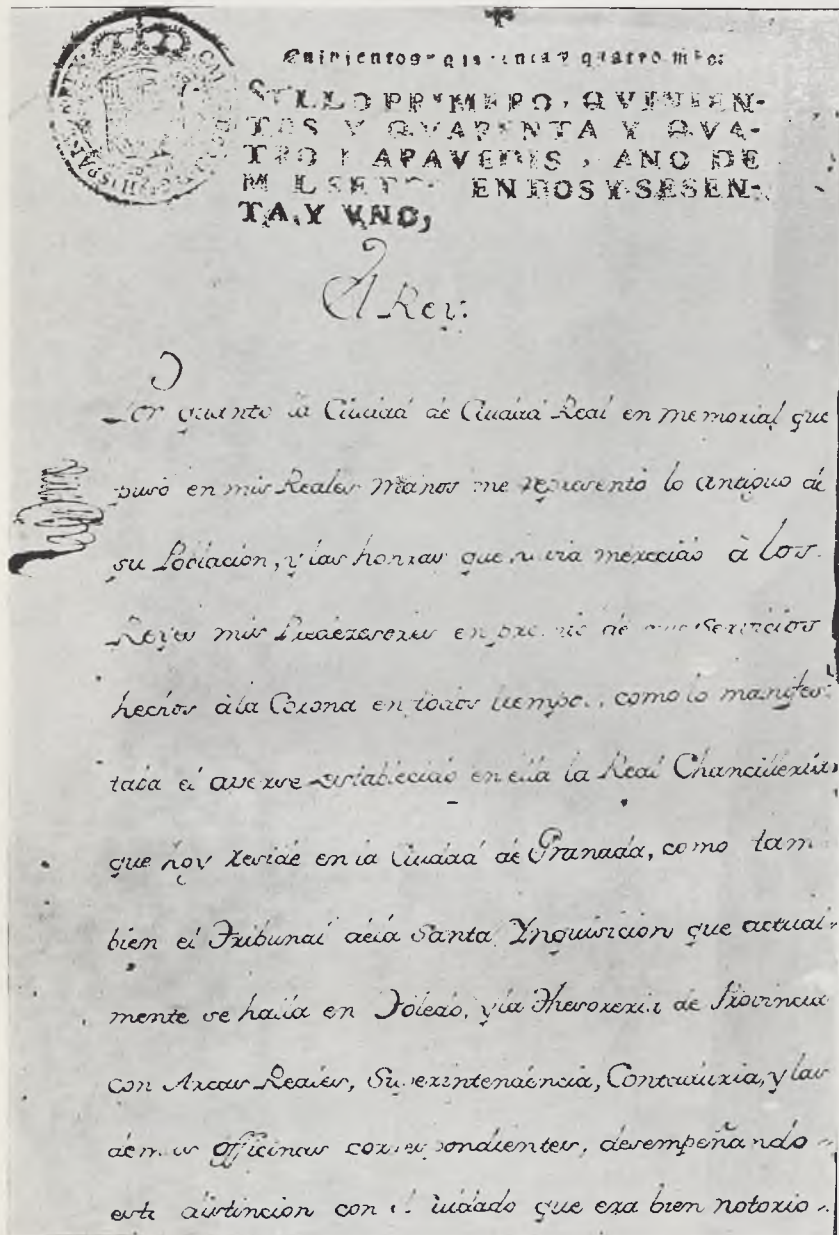 Quinientos quarenta y quatro mrs.
SELLO PRIMERO, QVINIEN-
TOS Y QVARENTA Y QVA-
TRO MARAVEDIS, AÑO DE
MIL SETECIENTOS Y SESEN-
TA, Y VNO,
El Rey:
Por quanto la Ciudad de Ciudad Real en memorial que
puso en mis Reales Manos me represento lo antiguo de
su Poblacion, y las honrras que havia merecido à los
Reyes mis Predezesores en premio de sus Servicios
hechos à la Corona en todos tiempos, como lo manifes-
taba el averse establecido en ella la Real Chancilleria,
que hoy reside en la Ciudad de Granada, como tam-
bien el Tribunal dela Santa Ynquisicion que actual-
mente se halla en Toledo, y la Thesoreria de Provincia
con Arcas Reales, Superintendencia, Contaduria, y las
demas officinas correspondientes, desempeñando
esta distincion con el cuidado que era bien notorio